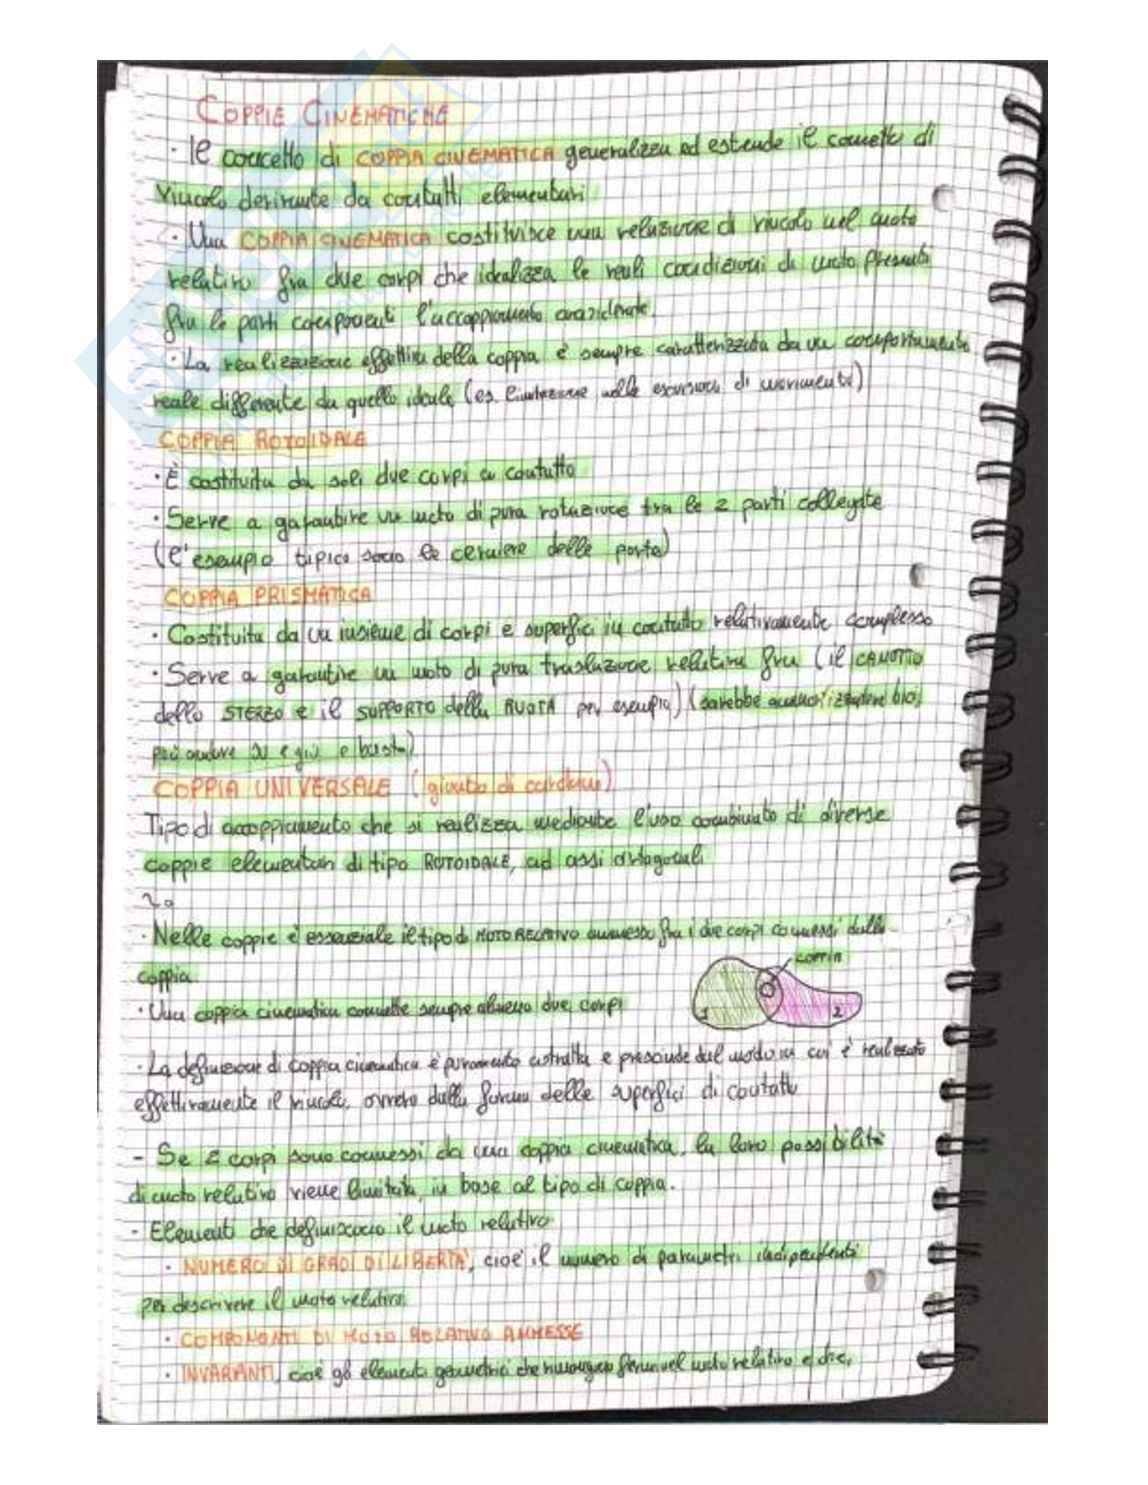 COPPIE CINEMATICHE
· Il concetto di COPPIA CINEMATICA generalizza ed estende il concetto di
vincolo derivante da contatti elementari
· Una COPPIA CINEMATICA costituisce una relazione di vincolo nel moto
relativo fra due corpi che idealizza le reali condizioni di moto presenti
fra le parti componenti l'accoppiamento considerato.
· La realizzazione effettiva della coppia è sempre caratterizzata da un comportamento
reale differente da quello ideale (es. limitazione nelle escursioni di movimento)
COPPIA ROTOIDALE
· È costituita da soli due corpi a contatto
· Serve a garantire un moto di pura rotazione tra le 2 parti collegate
(l'esempio tipico sono le cerniere delle porte)
COPPIA PRISMATICA
· Costituita da un insieme di corpi e superfici in contatto relativamente complesso
· Serve a garantire un moto di pura traslazione relativa fra (il CANOTTO
dello STERZO e il SUPPORTO della RUOTA per esempio) (sarebbe ammortizzatore bici,
può andare su e giù e basta)
COPPIA UNIVERSALE (giunto di cardano)
Tipo di accoppiamento che si realizza mediante l'uso combinato di diverse
coppie elementari di tipo ROTOIDALE, ad assi ortogonali
· Nelle coppie è essenziale il tipo di MOTO RELATIVO ammesso fra i due corpi connessi dalla
coppia
COPPIA
· Una coppia cinematica connette sempre almeno due corpi
1 2
· La definizione di coppia cinematica è puramente astratta e prescinde dal modo in cui è realizzato
effettivamente il vincolo, ovvero dalla forma delle superfici di contatto
- Se 2 corpi sono connessi da una coppia cinematica, la loro possibilità
di moto relativo viene limitata, in base al tipo di coppia.
- Elementi che definiscono il moto relativo
· NUMERO DI GRADI DI LIBERTÀ, cioè il numero di parametri indipendenti
per descrivere il moto relativo
· COMPONENTI DI MOTO RELATIVO AMMESSE
· INVARIANTI, cioè gli elementi geometrici che rimangono fermi nel moto relativo e che,